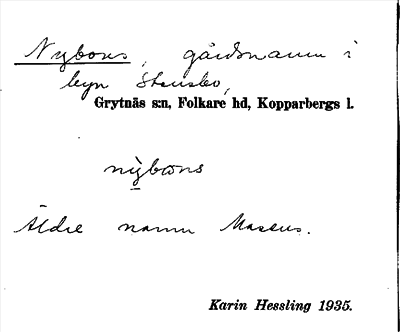 Nybons, gårdsnamn i
byn Stensbo,
Grytnäs s:n, Folkare hd, Kopparbergs l.
nỳbons
Äldre namn Masens.
Karin Hessling 1935.